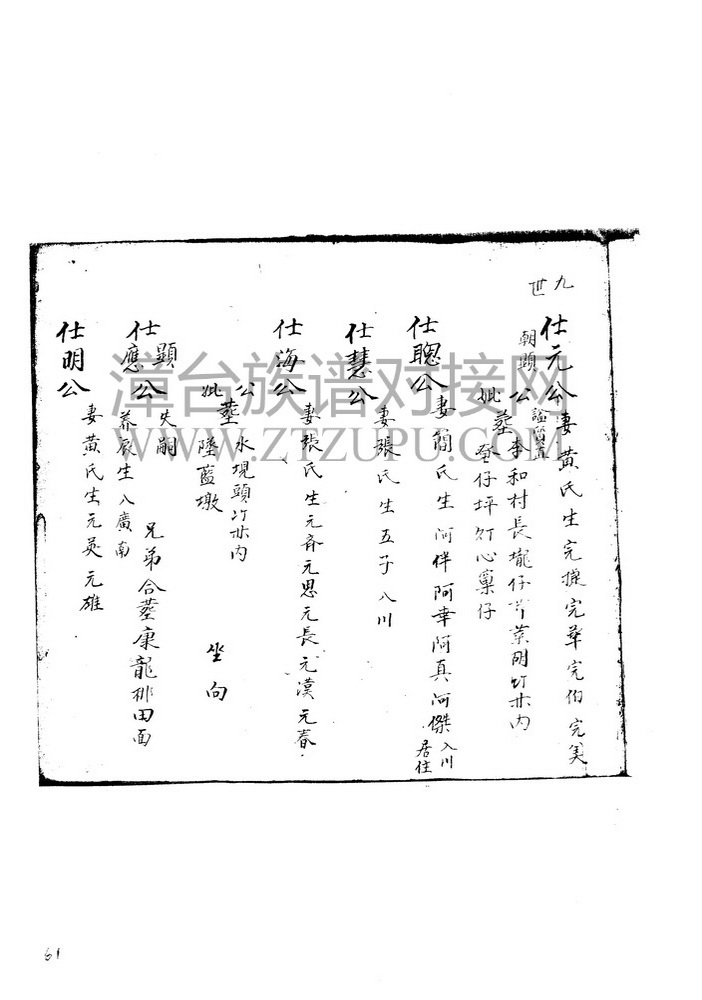 九世
仕元公 妻黃氏生完 完華完伯完美
朝顯
公 李和村長壠仔 内
妣葬 坪 心窠仔
仕聰公 妻簡氏生阿伴阿華阿真阿傑 入川居住
仕慧公 妻張氏生五子入川
仕海公 妻張氏生元齊元思元長元漢元春
公葬水規頭 内
妣 墜藍墩 坐向
仕顯公 失嗣
仕應公 養啟生入廣南
兄弟合葬康龍排田面
仕明公 妻黃氏生元英元雄
漳台族谱对接网
WWW.ZTZUPU.COM
61